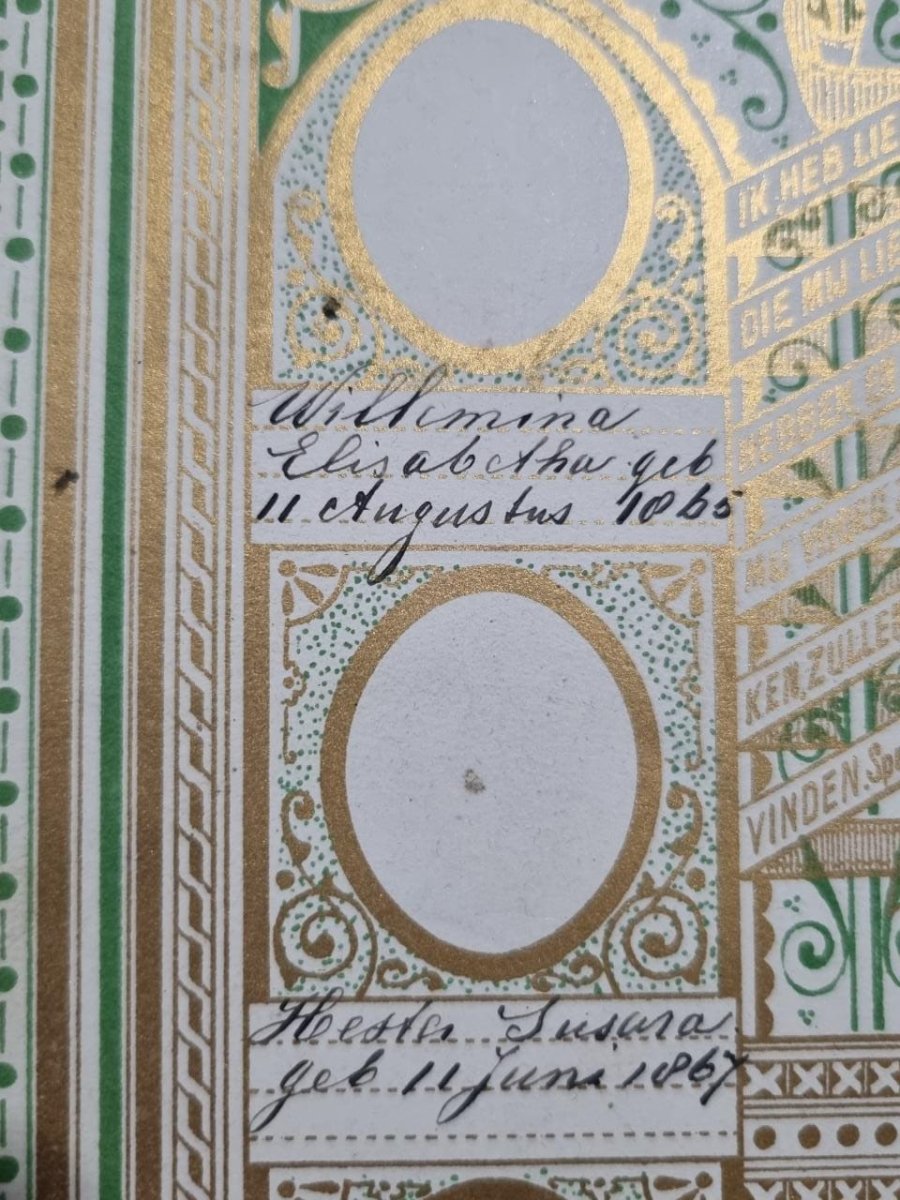 Willemina
Elisabetha geb
11 Augustus 1865
Hester Susara
geb 11 Juni 1867
IK HEB LIE
DIE MIJ LIE
HEBBEN
MIJ
KEN, ZULLE
VINDEN. Spr